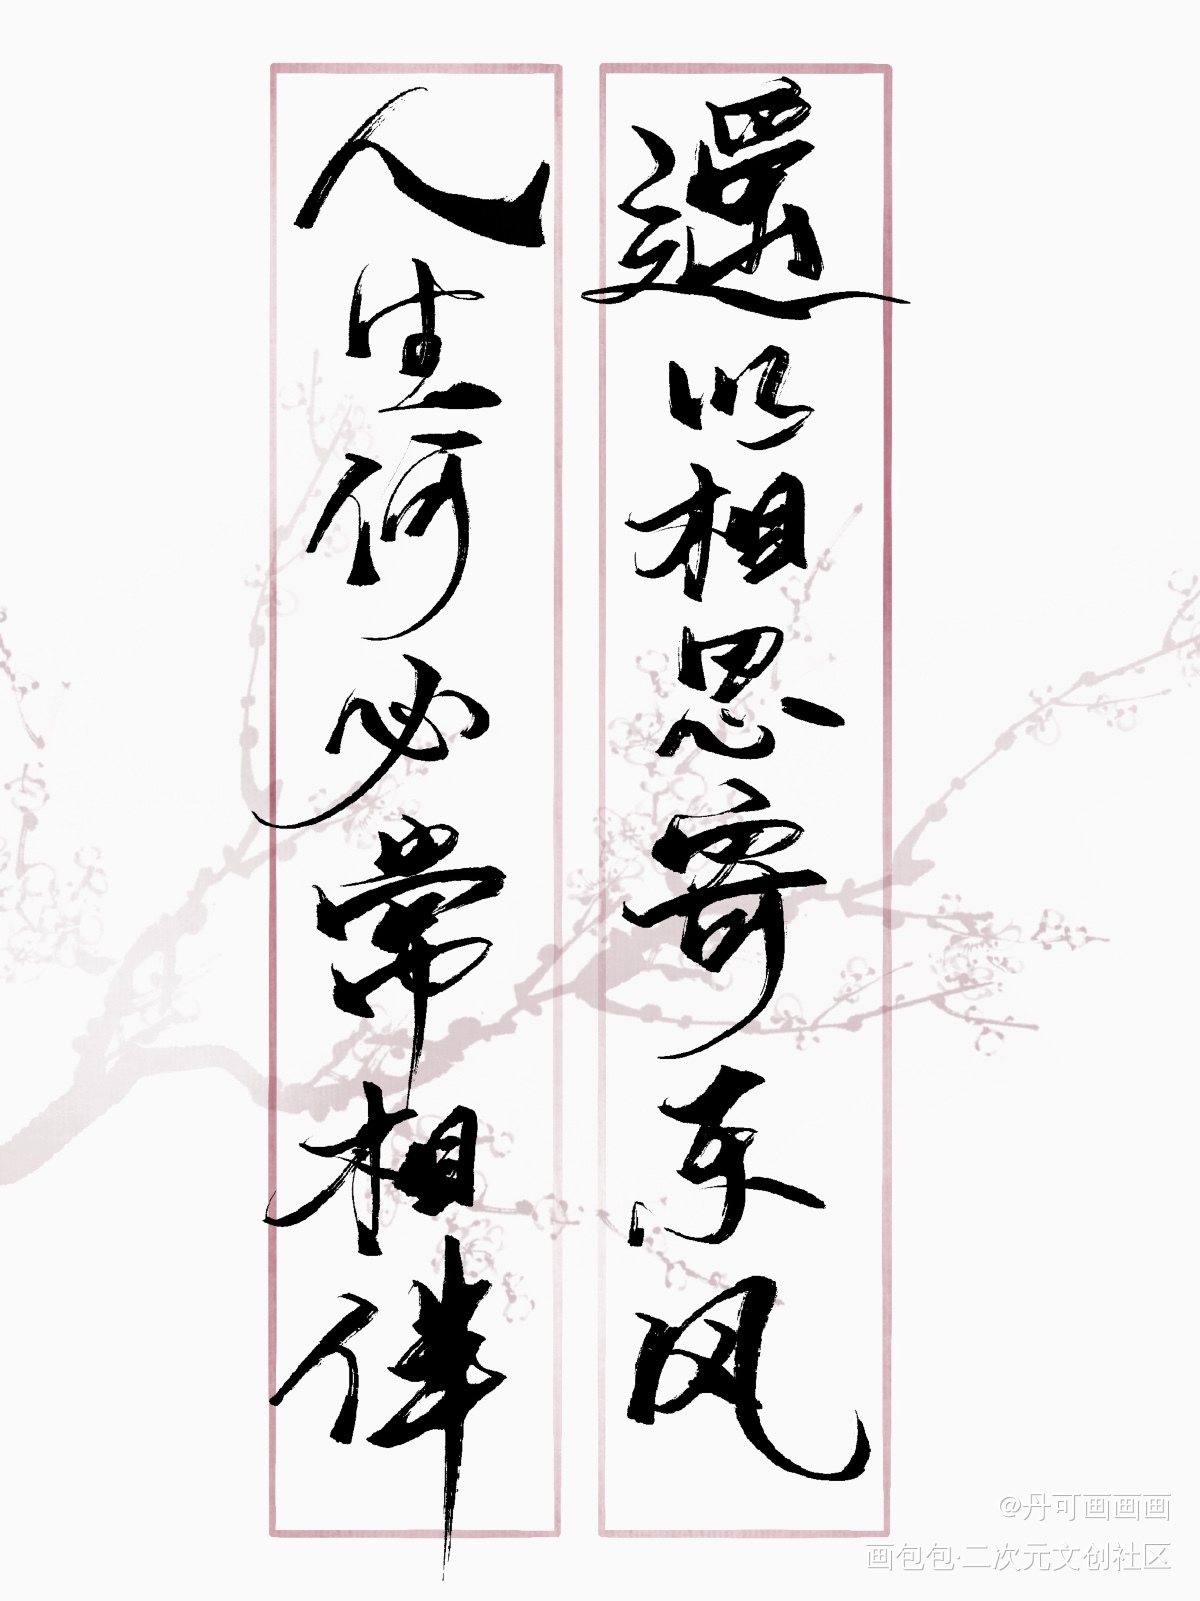 還以相思寄东风
人生何必常相伴
@丹可画画画
画包包·二次元文创社区